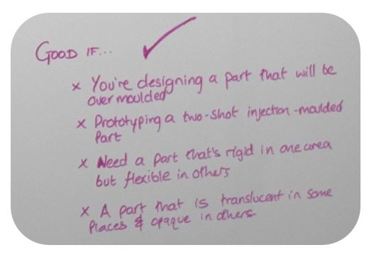 GOOD IF...
x You're designing a part that will be
overmoulded
x Prototyping a two-shot injection-moulded
Part
x Need a part that's rigid in one area
but flexible in others
x A part that is translucent in some
Places & opaque in others